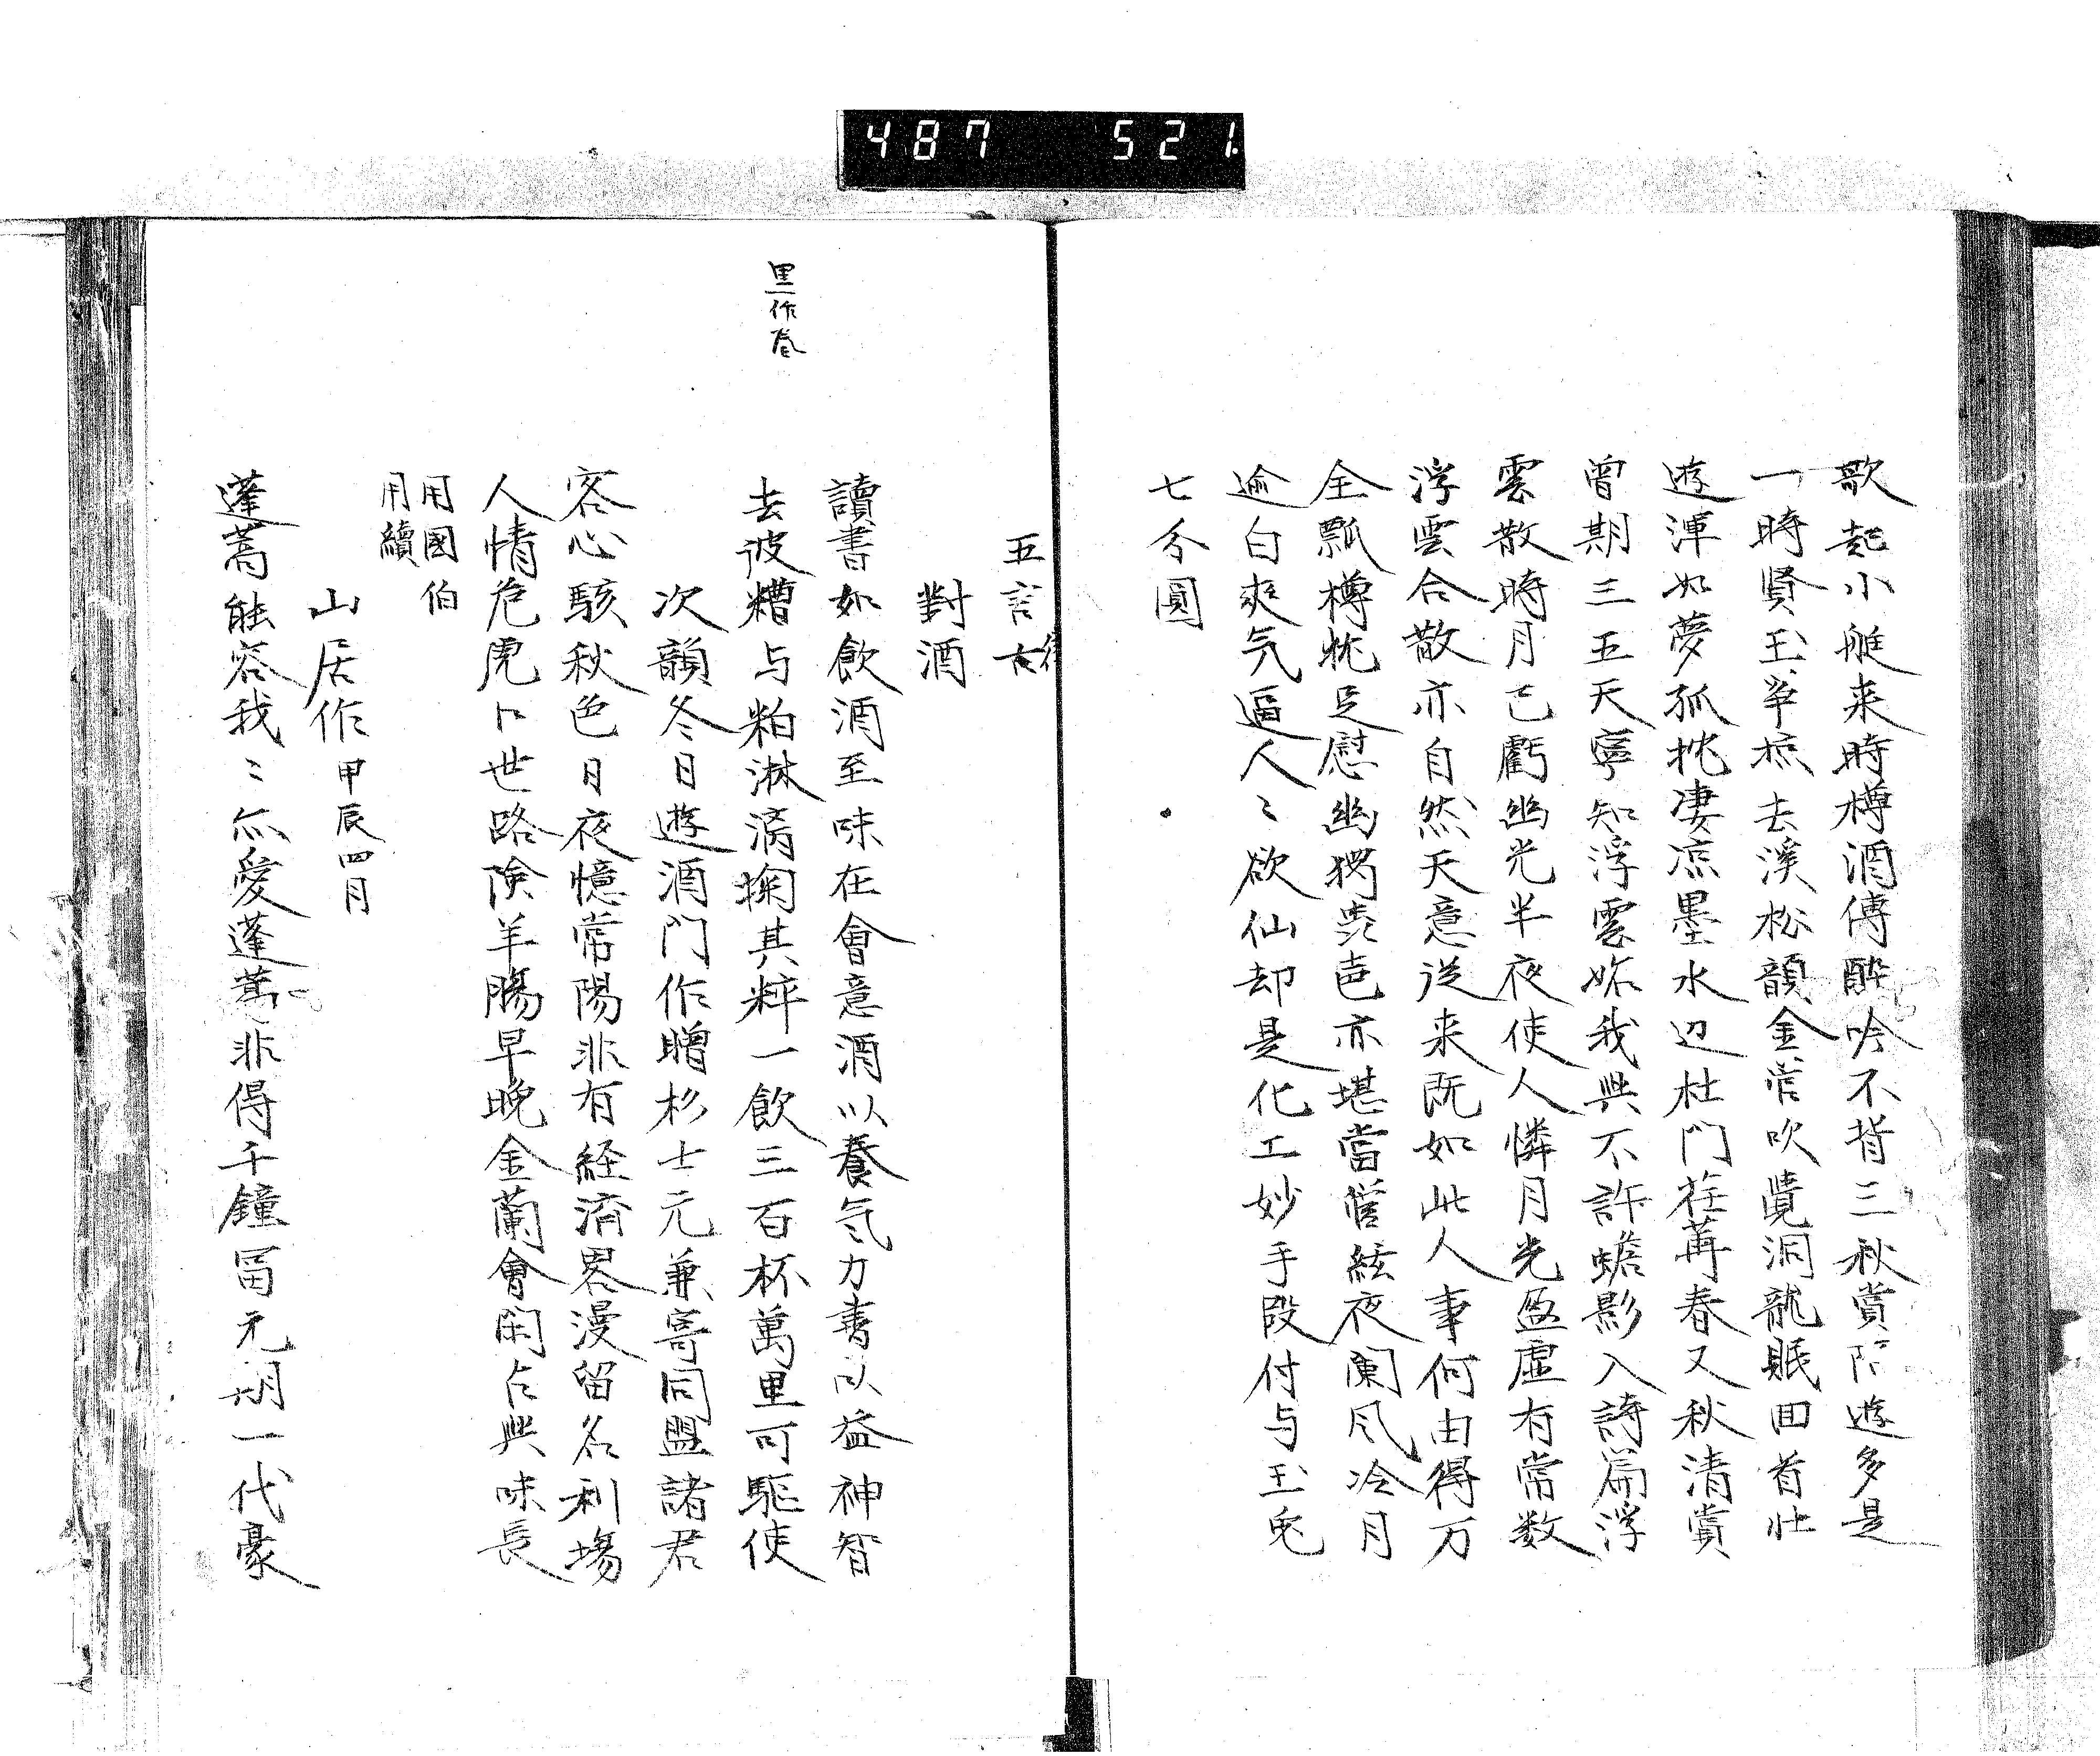 487 521
歌起小艇来時樽酒傅酔吟不背三秋賞陪遊多是
一時賢玉笋㭾去溪松韻金管吹覺洞龍眠回首壮
遊渾如夢孤枕凄凉墨水辺杜門荏苒春又秋清賞
曽期三五天寧知浮雲妬我興不許蟾影入詩篇浮
雲散時月已虧幽光半夜使人憐月光盈虚有常数
浮雲合散亦自然天意従来既如此人事何由得万
全瓢樽枕足慰幽獨亦堪當管絃夜闌風冷月
逾白爽气逼人〻欲仙却是化工妙手段付与玉兎
七分圓
五言古
對酒
讀書如飲酒至味在會意酒以養気力書以益神智
去彼糟与粕淋滴掬其粹一飲三百杯萬里可駆使
里作巻
次韻冬日遊酒門作贈杉士元兼寄同盟諸君
客心駭秋色日夜憶常陽非有経済畧漫留名利塲
人情危虎口世路険羊腸早晩金蘭會閑占興味長
用國伯
用續
山居作甲辰四月
蓬蒿能容我〻亦愛蓬蒿非得千鐘冨元期一代豪